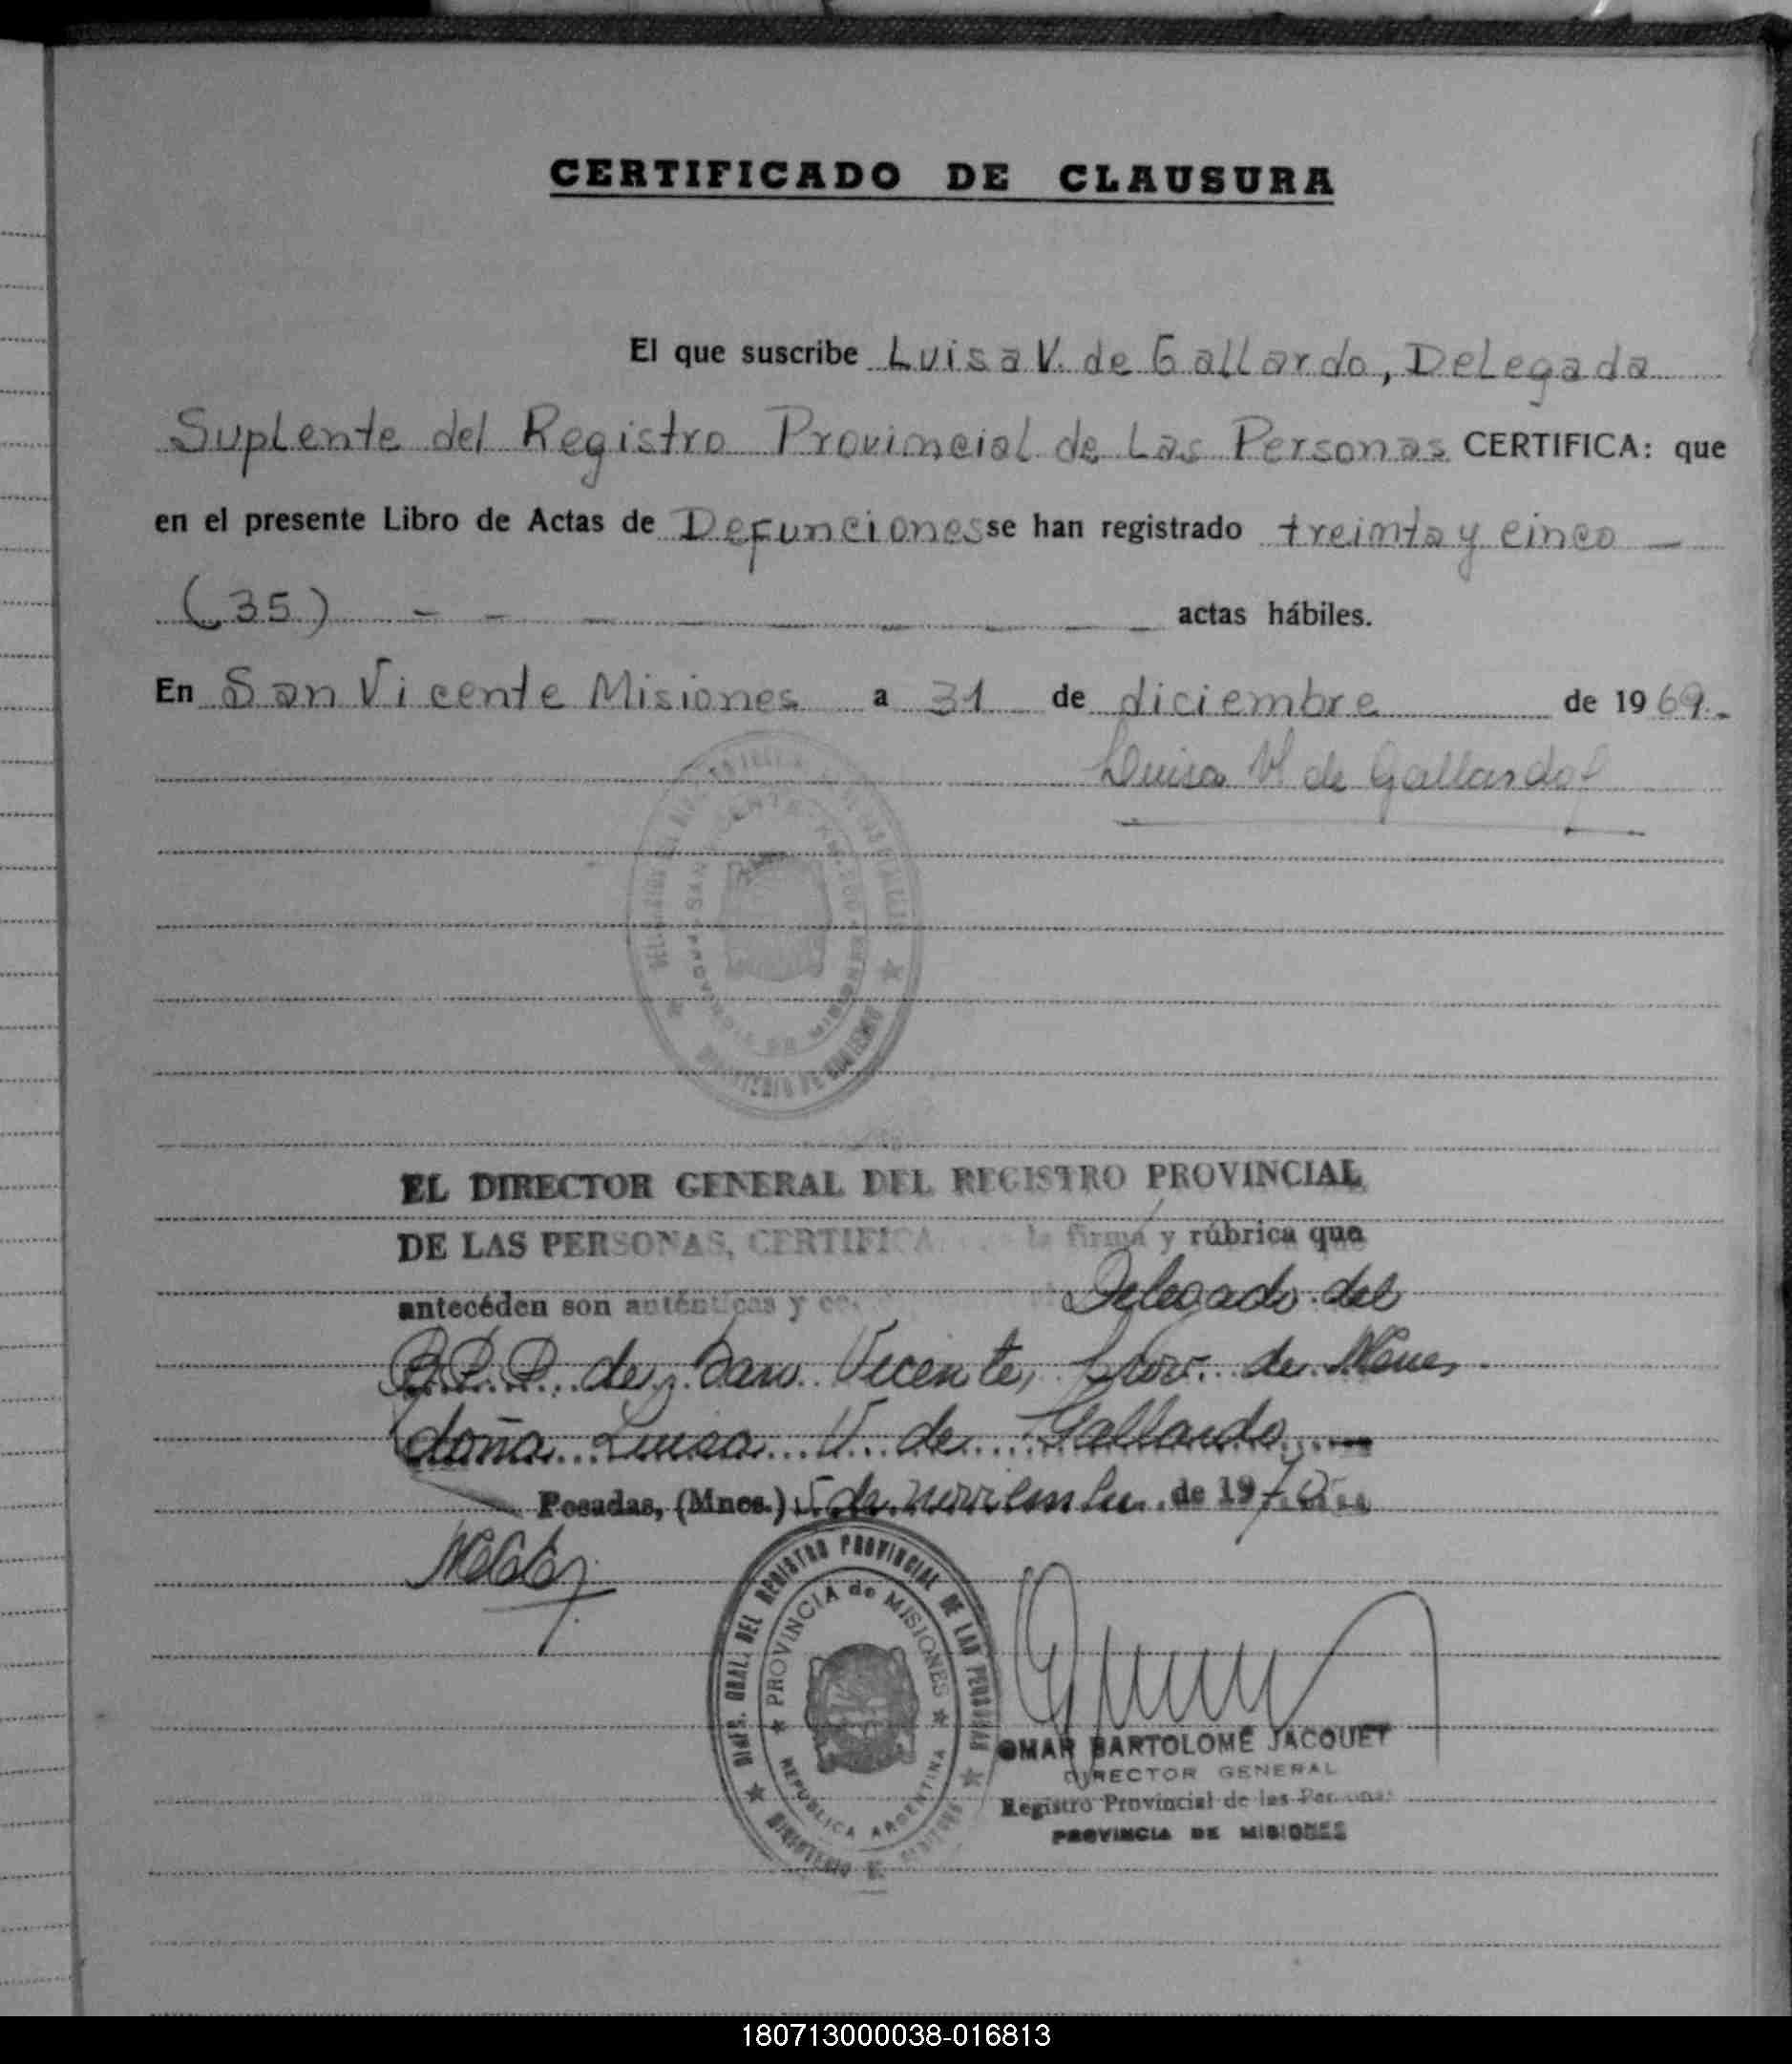 CERTIFICADO DE CLAUSURA
El que suscribe Luisa V. de Gallardo, Delegada
Suplente del Registro Provincial de Las Personas CERTIFICA: que
en el presente Libro de Actas de Defunciones se han registrado treinta y cinco —
(35) — — — — — — — actas hábiles.
En San Vicente Misiones a 31 de diciembre de 1969.-
Luisa V. de Gallardo
SAN VICENTE
PROVINCIA DE MISIONES
MINISTERIO DE GOBIERNO
EL DIRECTOR GENERAL DEL REGISTRO PROVINCIAL
DE LAS PERSONAS, CERTIFICA la firma y rúbrica que
antecéden son auténticas y Delegado del
R.P.P. de San Vicente, Prov. de Mnes.
doña Luisa V. de Gallardo
Posadas, (Mnes.) 5 de noviembre de 1970
DIREC. GRAL. DEL REGISTRO PROVINCIAL DE LAS PERSONAS
PROVINCIA de MISIONES
REPUBLICA ARGENTINA
MINISTERIO
OMAR BARTOLOMÉ JACQUET
DIRECTOR GENERAL
Registro Provincial de las Personas
PROVINCIA DE MISIONES
180713000038-016813